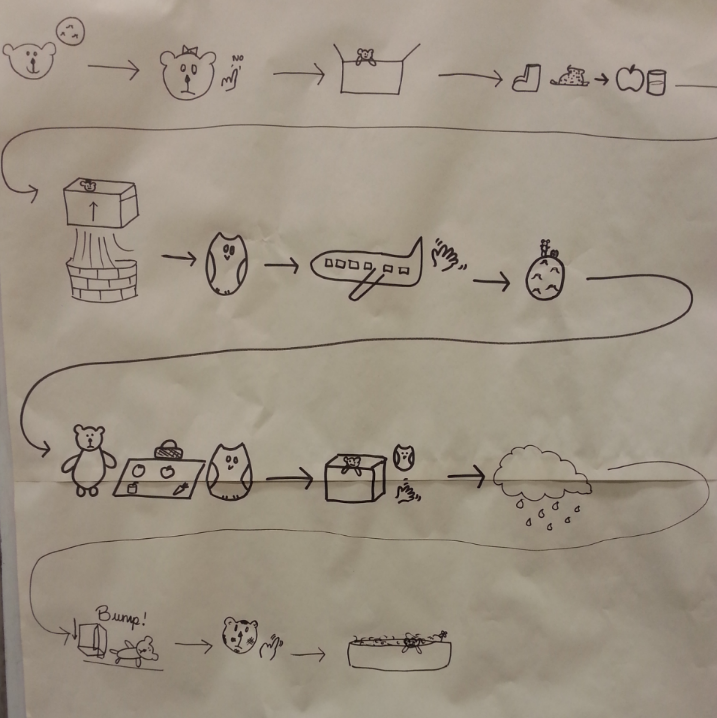 NO
Bump!